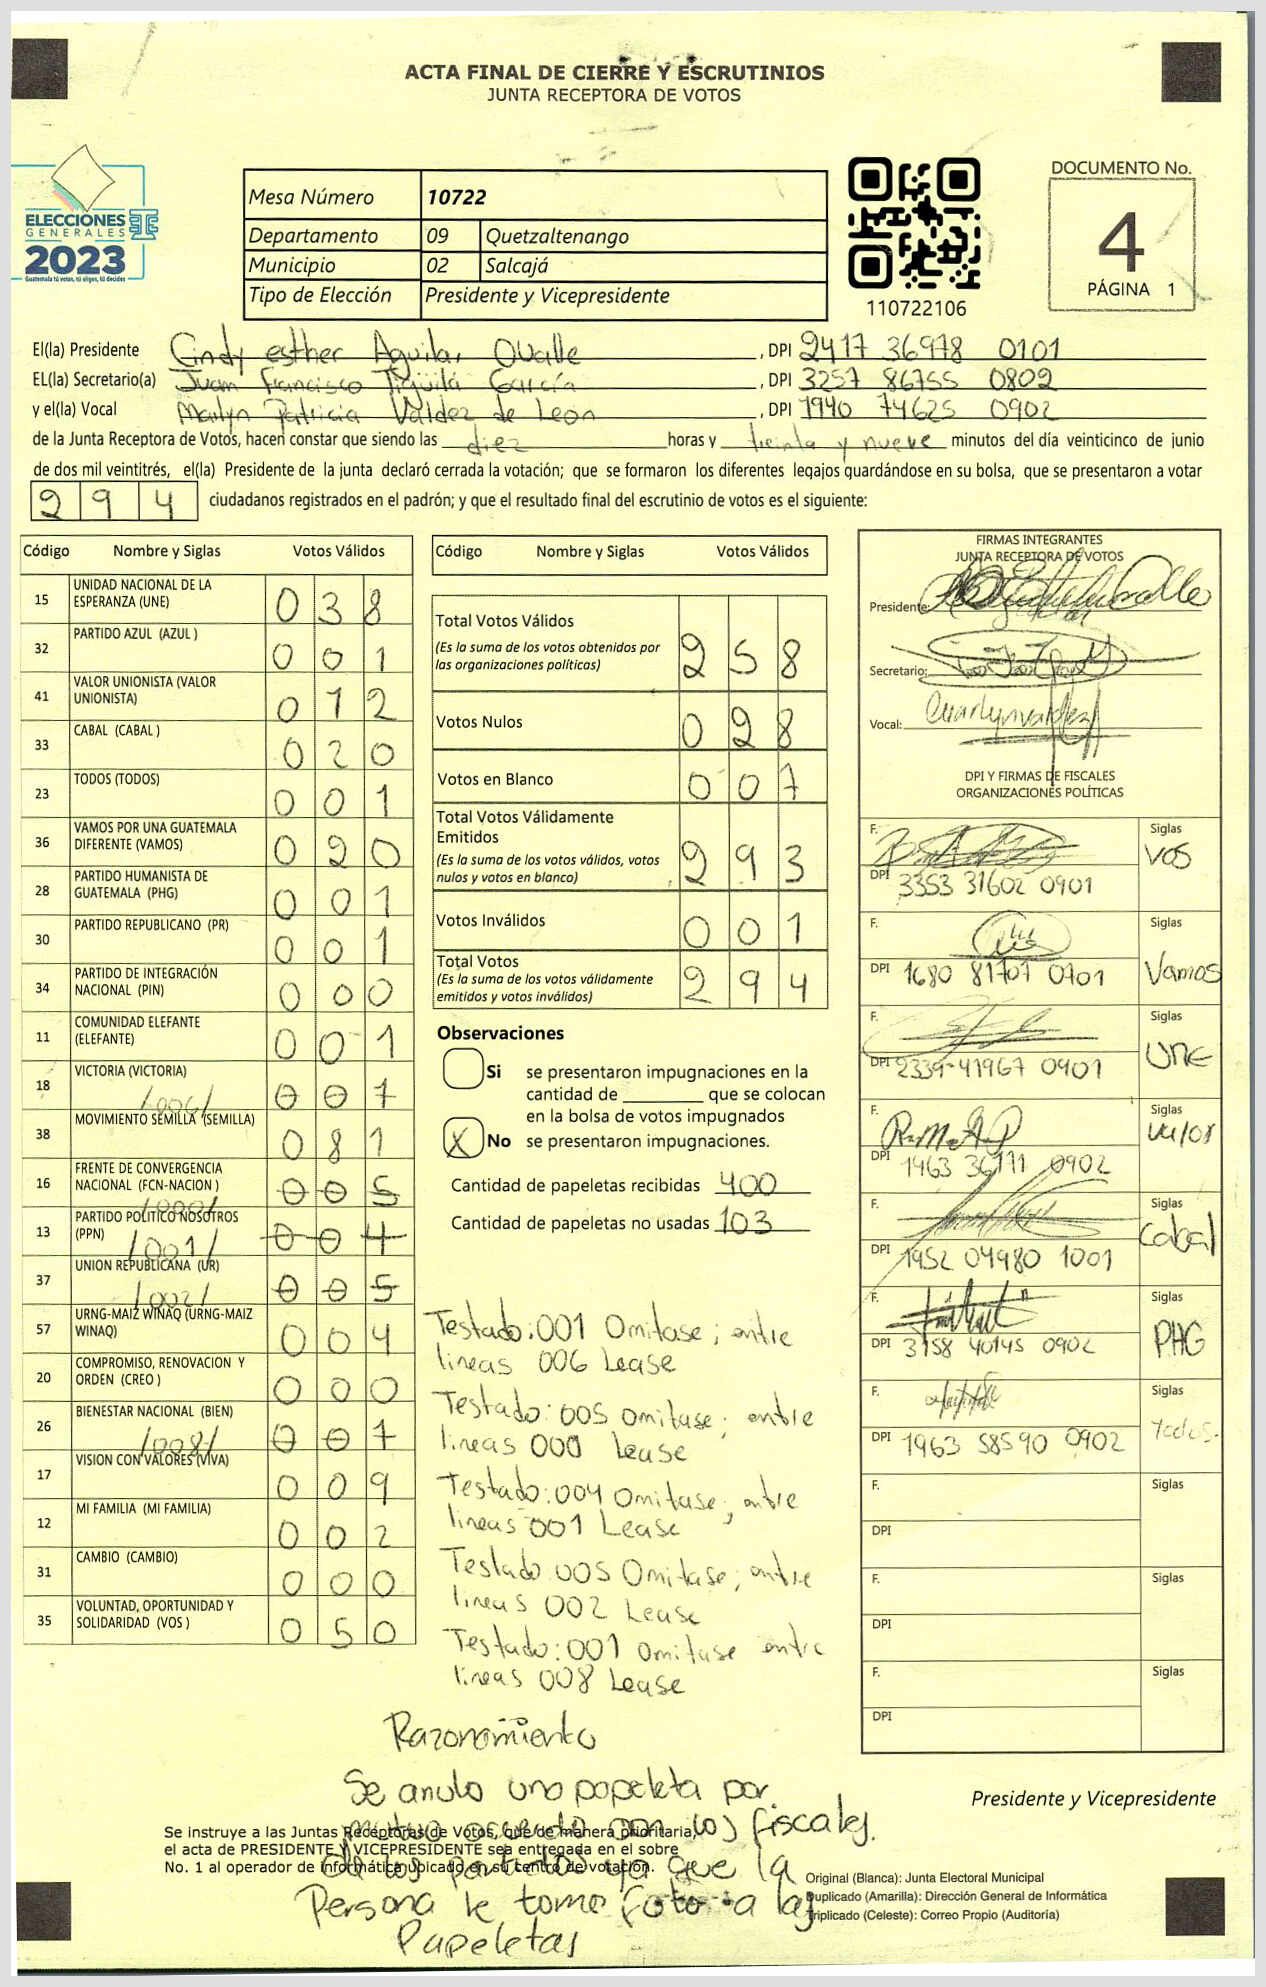 ACTA FINAL DE CIERRE Y ESCRUTINIOS
JUNTA RECEPTORA DE VOTOS
ELECCIONES
GENERALES
2023
Guatemala tú votas, tú eliges, tú decides
Mesa Número 10722
Departamento 09 Quetzaltenango
Municipio 02 Salcajá
Tipo de Elección Presidente y Vicepresidente
110722106
DOCUMENTO No.
4
PÁGINA 1
El(la) Presidente Cindy esther Aguilar Ovalle, DPI 2417 36978 0101
EL(la) Secretario(a) Juan Francisco Tiguilá García, DPI 3257 86755 0802
y el(la) Vocal Marlyn Patricia Valdez de León, DPI 1940 74625 0902
de la Junta Receptora de Votos, hacen constar que siendo las diez horas y treinta y nueve minutos del día veinticinco de junio
de dos mil veintitrés, el(la) Presidente de la junta declaró cerrada la votación; que se formaron los diferentes legajos guardándose en su bolsa, que se presentaron a votar
294 ciudadanos registrados en el padrón; y que el resultado final del escrutinio de votos es el siguiente:
Código Nombre y Siglas Votos Válidos
15 UNIDAD NACIONAL DE LA ESPERANZA (UNE) 038
32 PARTIDO AZUL (AZUL ) 001
41 VALOR UNIONISTA (VALOR UNIONISTA) 012
33 CABAL (CABAL ) 020
23 TODOS (TODOS) 001
36 VAMOS POR UNA GUATEMALA DIFERENTE (VAMOS) 020
28 PARTIDO HUMANISTA DE GUATEMALA (PHG) 001
30 PARTIDO REPUBLICANO (PR) 001
34 PARTIDO DE INTEGRACIÓN NACIONAL (PIN) 000
11 COMUNIDAD ELEFANTE (ELEFANTE) 001
18 VICTORIA (VICTORIA) /006/ 001
38 MOVIMIENTO SEMILLA (SEMILLA) 081
16 FRENTE DE CONVERGENCIA NACIONAL (FCN-NACION ) /000/ 005
13 PARTIDO POLITICO NOSOTROS (PPN) /001/ 004
37 UNION REPUBLICANA (UR) /002/ 005
57 URNG-MAIZ WINAQ (URNG-MAIZ WINAQ) 004
20 COMPROMISO, RENOVACION Y ORDEN (CREO ) 000
26 BIENESTAR NACIONAL (BIEN) /008/ 001
17 VISION CON VALORES (VIVA) 009
12 MI FAMILIA (MI FAMILIA) 002
31 CAMBIO (CAMBIO) 000
35 VOLUNTAD, OPORTUNIDAD Y SOLIDARIDAD (VOS ) 050
Código Nombre y Siglas Votos Válidos
Total Votos Válidos 258
(Es la suma de los votos obtenidos por
las organizaciones políticas)
Votos Nulos 028
Votos en Blanco 007
Total Votos Válidamente
Emitidos 293
(Es la suma de los votos válidos, votos
nulos y votos en blanco)
Votos Inválidos 001
Total Votos 294
(Es la suma de los votos válidamente
emitidos y votos inválidos)
Observaciones
Si se presentaron impugnaciones en la
cantidad de ________ que se colocan
en la bolsa de votos impugnados
X No se presentaron impugnaciones.
Cantidad de papeletas recibidas 400
Cantidad de papeletas no usadas 103
Testado: 001 Omitase; entre
lineas 006 Lease
Testado: 005 Omitase; entre
lineas 000 Lease
Testado: 004 Omitase; entre
lineas 001 Lease
Testado 005 Omitase; entre
lineas 002 Lease
Testado: 001 Omitase entre
lineas 008 Lease
Razonamiento
Se anulo una papeleta por
mutuo acuerdo con los fiscales.
de los partidos ya que la
Persona le tomo foto a las
Papeletas
FIRMAS INTEGRANTES
JUNTA RECEPTORA DE VOTOS
Presidente:
Secretario:
Vocal:
DPI Y FIRMAS DE FISCALES
ORGANIZACIONES POLÍTICAS
F. Siglas VOS
DPI 3353 31602 0901
F. Siglas Vamos
DPI 1680 81701 0901
F. Siglas UNE
DPI 2339-41967 0901
F. Siglas Valor
DPI 1963 36111 0902
F. Siglas Cabal
DPI 1952 04980 1001
F. Siglas PHG
DPI 3158 40145 0902
F. Siglas Todos.
DPI 1963 58590 0902
F. Siglas
DPI
F. Siglas
DPI
F. Siglas
DPI
Presidente y Vicepresidente
Se instruye a las Juntas Receptoras de Votos, que de manera prioritaria,
el acta de PRESIDENTE Y VICEPRESIDENTE sea entregada en el sobre
No. 1 al operador de informática ubicado en su centro de votación.
Original (Blanca): Junta Electoral Municipal
Duplicado (Amarilla): Dirección General de Informática
Triplicado (Celeste): Correo Propio (Auditoría)